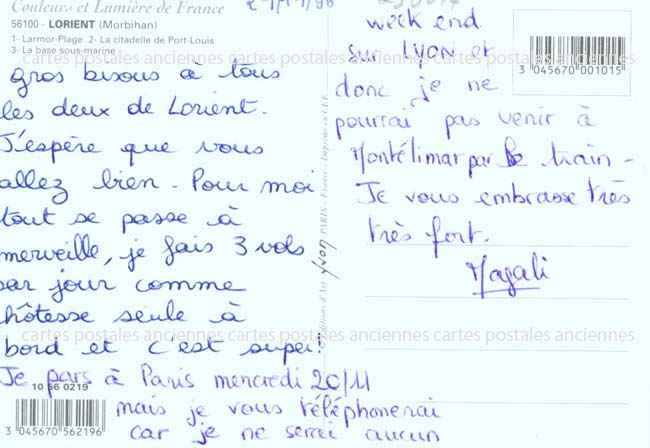 Couleurs et Lumière de France
56100 - LORIENT (Morbihan)
1- Larmor-Plage 2- La citadelle de Port-Louis
3- La base sous-marine
cartes postales anciennes cartes postales anciennes cartes postales anciennes
gros bisous à tous
les deux de Lorient.
J'espère que vous
allez bien - Pour moi
tout se passe à
merveille, je fais 3 vols
par jour comme
hôtesse seule à
bord et c'est super!
cartes postales anciennes cartes postales anciennes cartes postales anciennes
Je pars à Paris mercredi 20/11
mais je vous téléphonerai
car je ne serai aucun
week end
sur Lyon et
donc je ne
pourrai pas venir à
Montélimar par le train -
Je vous embrasse très
très fort.
Magali
Editions d'Art yvon PARIS France. Imprimé en CEE
3 045670 001015
10 56 0219
3 045670 562196